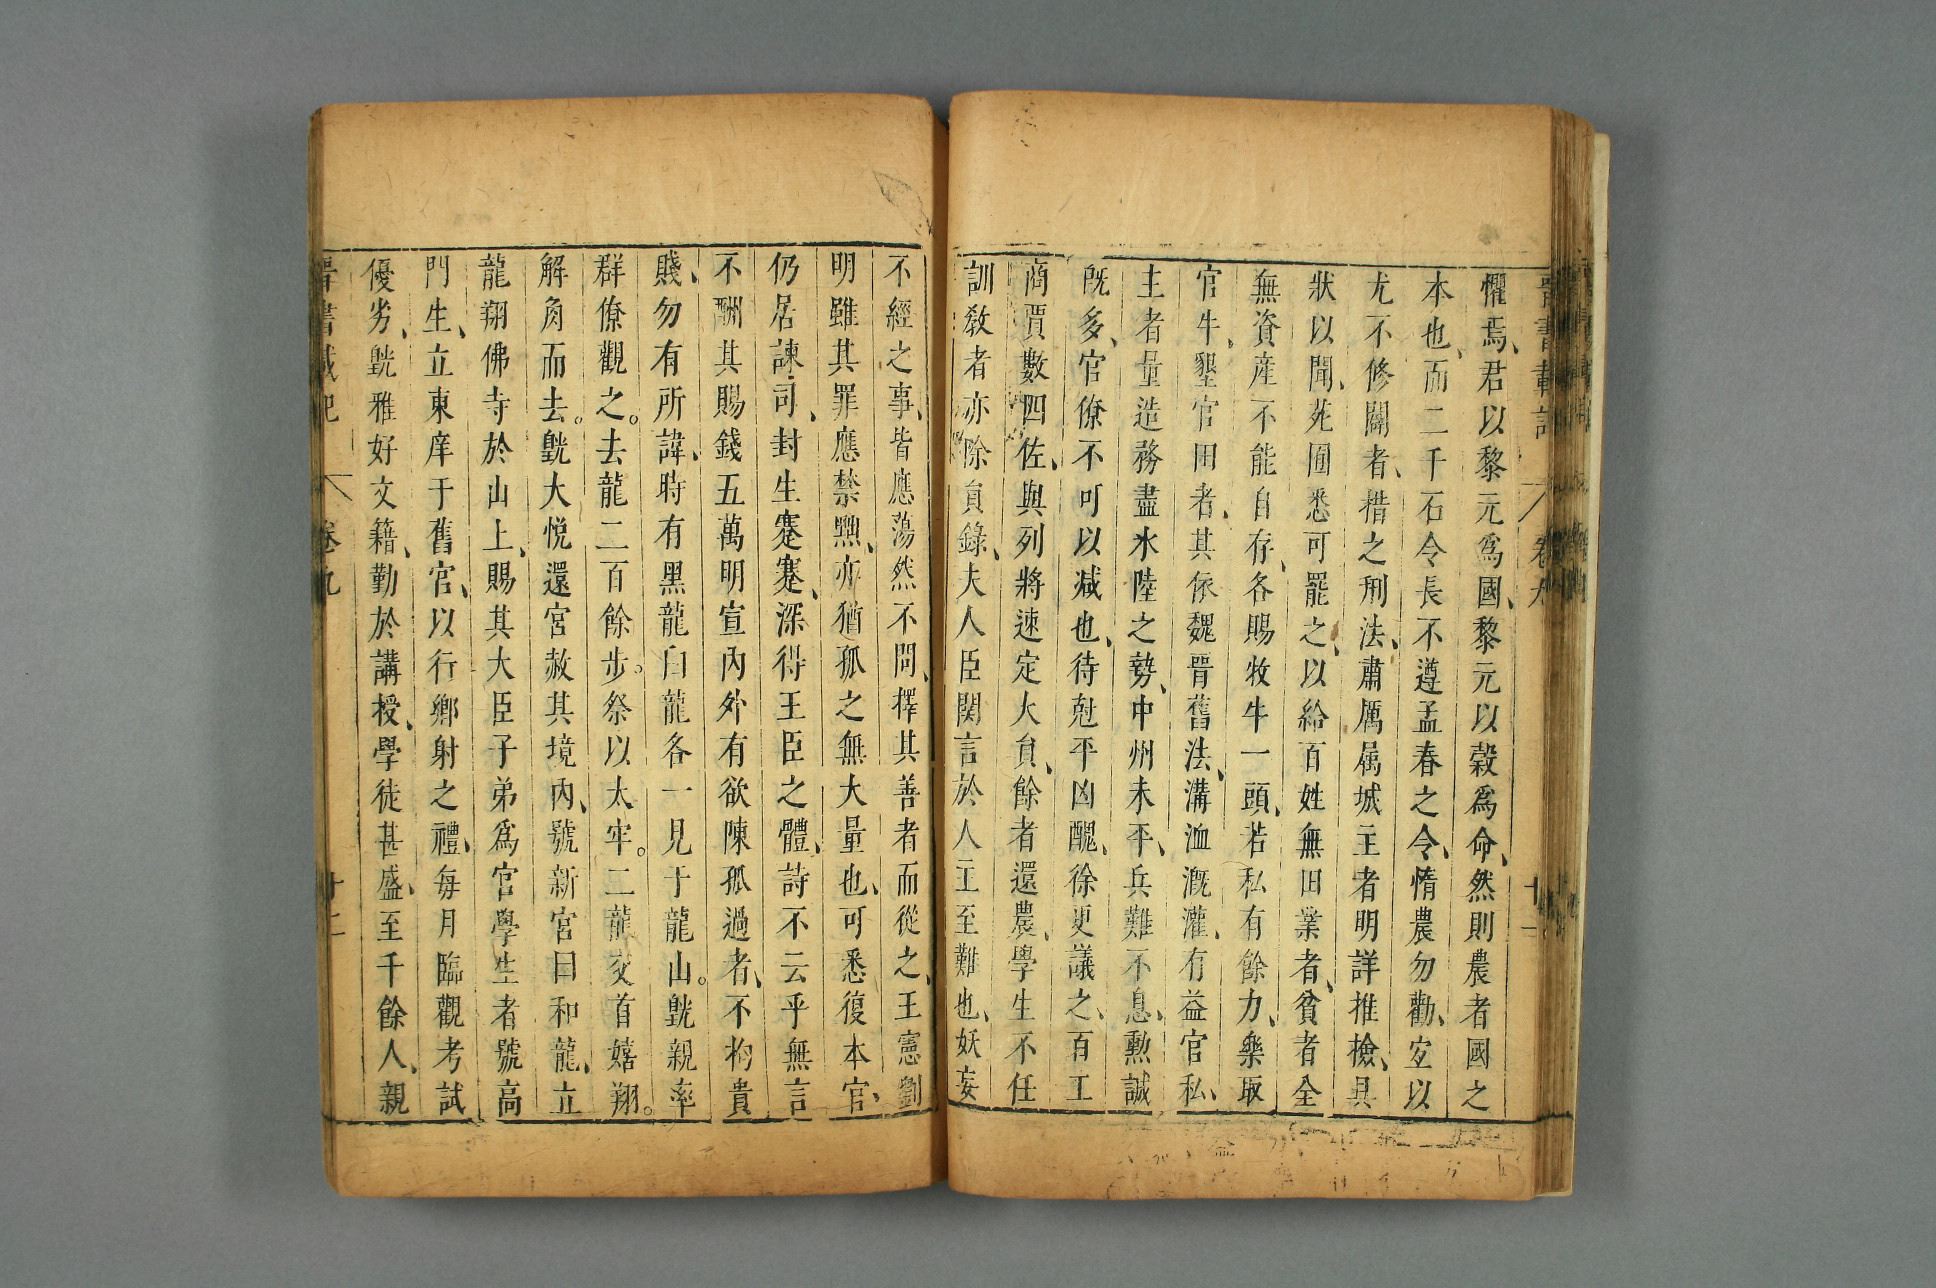 晉書載記 卷九 十一
懼焉、君以黎元爲國、黎元以穀爲命、然則農者國之
本也、而二千石令長不遵孟春之令、惰農勿勸、宐以
尤不修闢者、措之刑法、肅厲属城主者明詳推檢、具
狀以聞、苑囿悉可罷之、以給百姓無田業者、貧者全
無資産不能自存、各賜牧牛一頭、若私有餘力、樂取
官牛、墾官田者、其依魏晋舊法、溝洫溉灌、有益官私、
主者量造、務盡水陸之勢、中州未平、兵難不息、勲誠
旣多、官僚不可以减也、待尅平凶醜、徐更議之、百工
商賈數四佐、與列將速定大貟、餘者還農、學生不任
訓敎者亦除貟錄、夫人臣関言於人主至難也、妖妄
不經之事、皆應蕩然不問、擇其善者而從之、王憲劉
明雖其罪應禁黜、亦猶孤之無大量也、可悉復本官、
仍居諫司、封生蹇蹇、深得王臣之體、詩不云乎無言
不酬其賜錢五萬明宣內外有欲陳孤過者、不拘貴
賤、勿有所諱、時有黑龍白龍各一見于龍山。皝親率
群僚觀之。去龍二百餘步。祭以太牢。二龍交首嬉翔。
解角而去。皝大悅還宮赦其境內、號新宮曰和龍、立
龍翔佛寺於山上、賜其大臣子弟爲官學生者號高
門生、立東庠于舊宮、以行鄉射之禮、每月臨觀考試
優劣、皝雅好文籍、勤於講授、學徒甚盛、至千餘人、親
晉書載記 卷九 十二